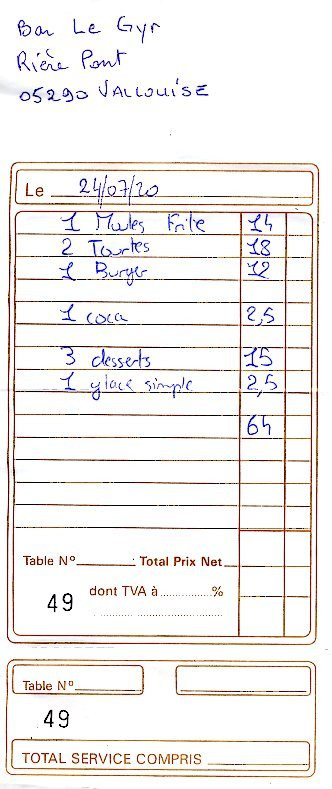 Bar Le Gyr
Rière Pont
05290 VALLOUISE
Le 24/07/20
1 Moules Frite 14
2 Tourtes 18
1 Burger 12
1 coca 2,5
3 desserts 15
1 glace simple 2,5
64
Table N° Total Prix Net
49 dont TVA à %
Table N°
49
TOTAL SERVICE COMPRIS